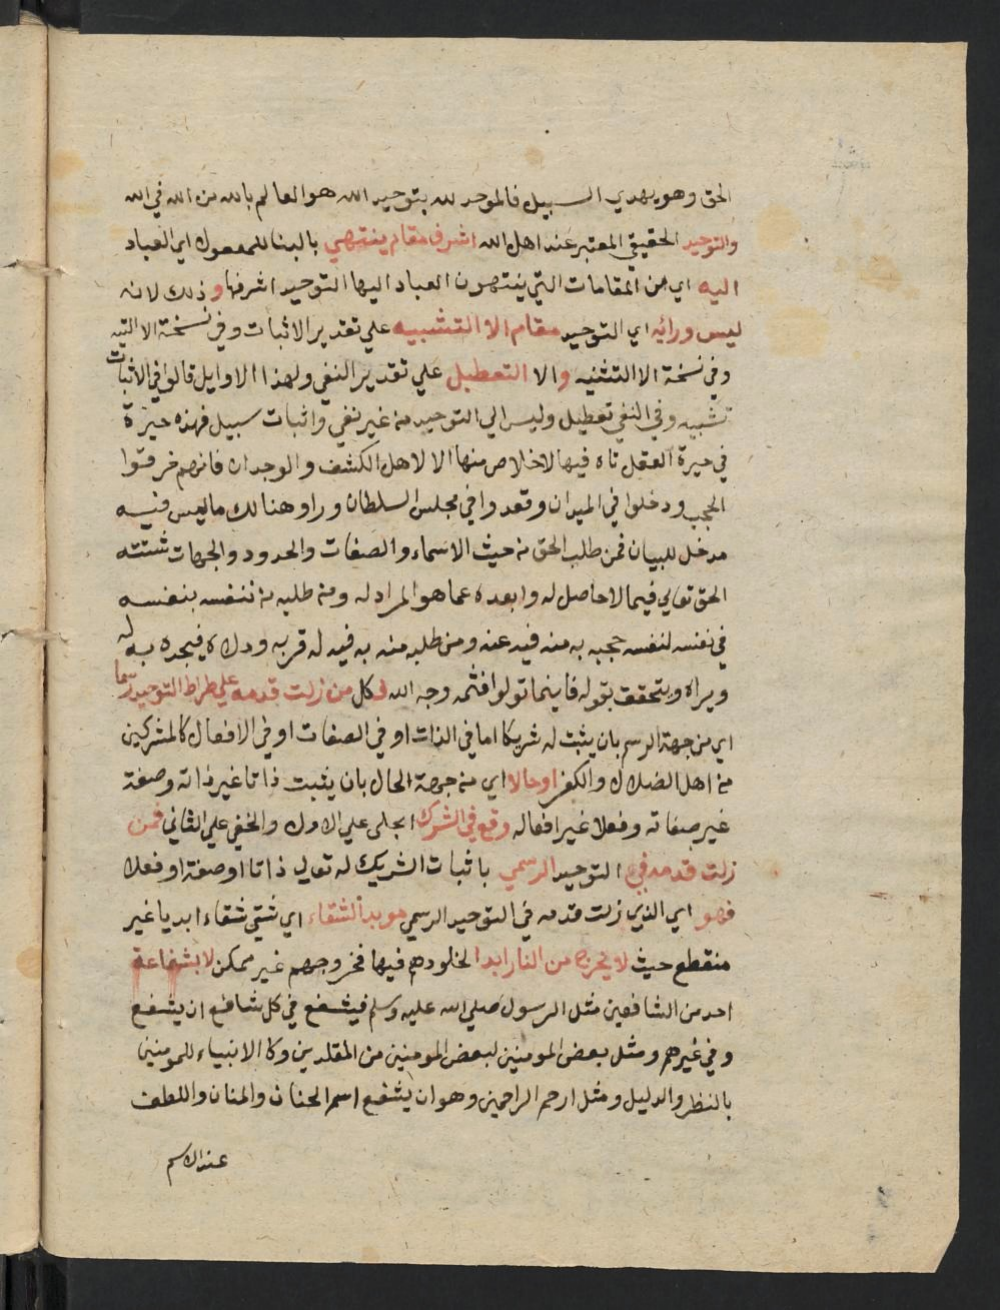 الحق وهو يهدي السبيل فالموحد لله بتوحيد الله هو العالم بالله من الله في الله
والتوحيد الحقيقي المعتبر عند اهل الله اشرف مقام ينتهي بالبنا للمفعول اي العباد
اليه اي من المقامات التي ينتهون العباد اليها التوحيد اشرفها وذلك لانه
ليس ورائه اي التوحيد مقام الا التشبيه علي تقدير الاثبات وفي نسخة الا التيه
وفي نسخة الا التثنيه والا التعطيل علي تقدير النفي ولهذا الاوايل قالوا في الاثبات
تشبيه وفي النفي تعطيل وليس الي التوحيد من غير نفي واثبات سبيل فهذه حيرة
في حيرة العقل تاه فيها لا خلاص منها الا لاهل الكشف والوجدان فانهم خرقوا
الحجب ودخلوا في الميدان وقعدوا في مجلس السلطان وراو هنالك ما ليس فيه
مدخل للبيان فمن طلب الحق من حيث الاسماء والصفات والحدود والجهات شتته
الحق تعالي فيما لا حاصل له وابعده عما هو المراد له ومن طلبه من نفسه بنفسه
في نفسه لنفسه حجبه به منه فيه عنه ومن طلبه منه به فيه له قربه ودلاه فيجده به له
ويراه ويتحقق بقوله فاينما تولوا فثمه وجه الله فكل من زلت قدمه علي صراط التوحيد رسما
اي من جهة الرسم بان يثبت له شريكا اما في الذات او في الصفات او في الافعال كالمشركين
من اهل الضلال والكفر او حالا اي من جهة الحال بان يثبت ذاتا غير ذاته وصفة
غير صفاته وفعلا غير افعاله وقع في الشرك الجلي علي الاول والخفي علي الثاني فمن
زلت قدمه في التوحيد الرسمي باثبات الشريك له تعالي ذاتا او صفة او فعلا
فهو اي الذي زلت قدمه في التوحيد الرسمي مويد الشقاء اي شقي شقاء ابديا غير
منقطع حيث لا يخرج من النار ابدا لخلودهم فيها فخروجهم غير ممكن لا بشفاعة
احد من الشافعين مثل الرسول صلي الله عليه وسلم فيشفع في كل شافع ان يشفع
وفي غيرهم ومثل بعض المومنين لبعض المومنين من المقلدين وكالانبياء للمومنين
بالنظر والدليل ومثل ارحم الراحمين وهو ان يشفع اسم الحنان والمنان واللطف
عند الاسم